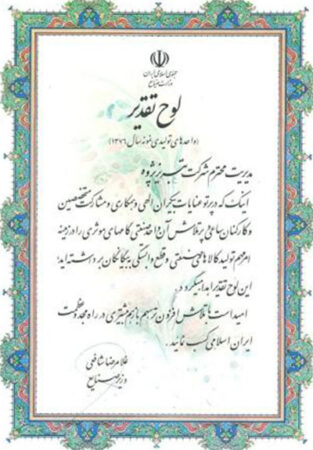 جمهوری اسلامی ایران
وزارت صنایع
لوح تقدیر
(واحدهای تولیدی نمونه سال ۱۳۷۶)
مدیریت محترم شرکت تبریز پژوه
اینک که در پرتو عنایات بیکران الهی و همکاری و مشارکت متخصصین
و کارکنان ساعی و پرتلاش آن واحد صنعتی گامهای موثری را در زمینه
امر مهم تولید کالاهای صنعتی و قطع وابستگی به بیگانگان برداشته اید؛
این لوح تقدیر اهدا میگردد.
امید است با تلاش افزون تر سهم بازهم بیشتری در راه مجد و عظمت
ایران اسلامی کسب نمائید.
غلامرضا شافعی
وزیر صنایع